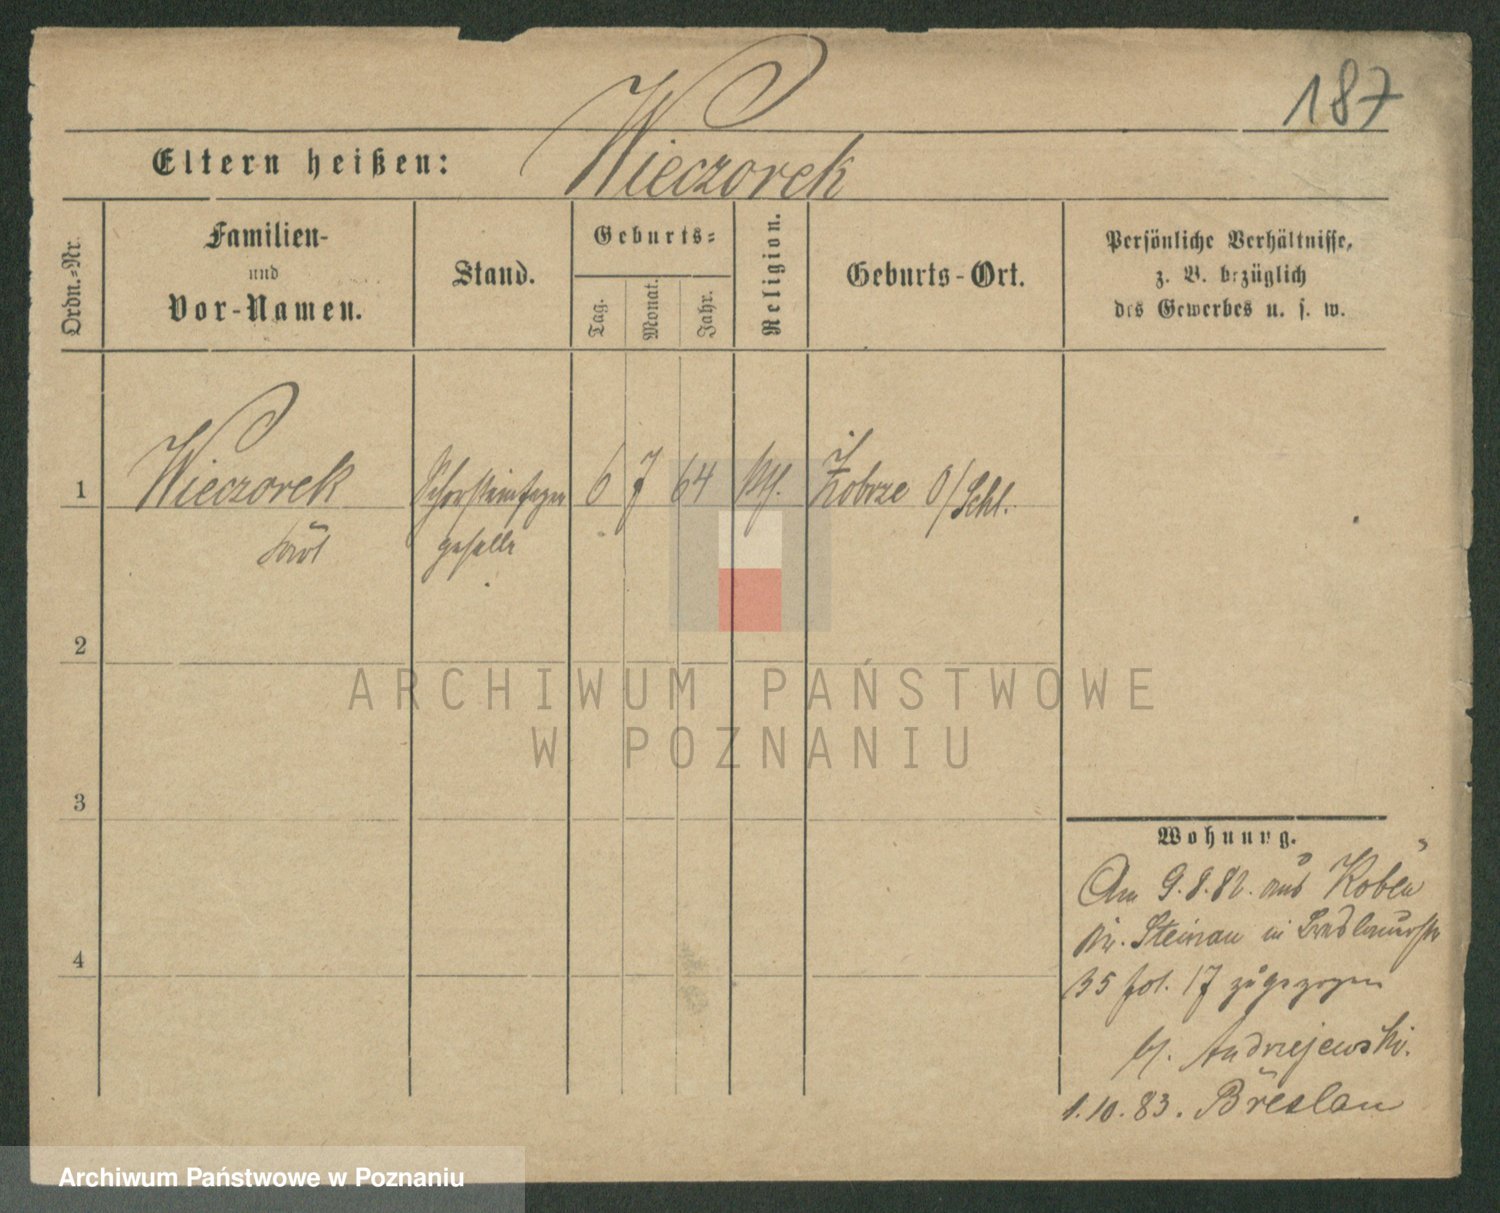 187
Wieczorek
Eltern heißen:
Ordn.=Nr.
Familien-
und
Vor-Namen.
Stand.
Geburts=
Tag.
Monat.
Jahr.
Religion.
Geburts-Ort.
Persönliche Verhältnisse,
z. B. bezüglich
des Gewerbes u. s. w.
1
Wieczorek Schornsteinfeger 6 7 64 Zobrze O/Schl.
geselle
2
ARCHIWUM PAŃSTWOWE
W POZNANIU
3
4
Wohnung.
Am 9.8.82. aus Koben
Kr. Steinau in Breslauerstr
35 fol. 17 zugezogen
Andrzejewski.
1.10.83. Breslau
Archiwum Państwowe w Poznaniu